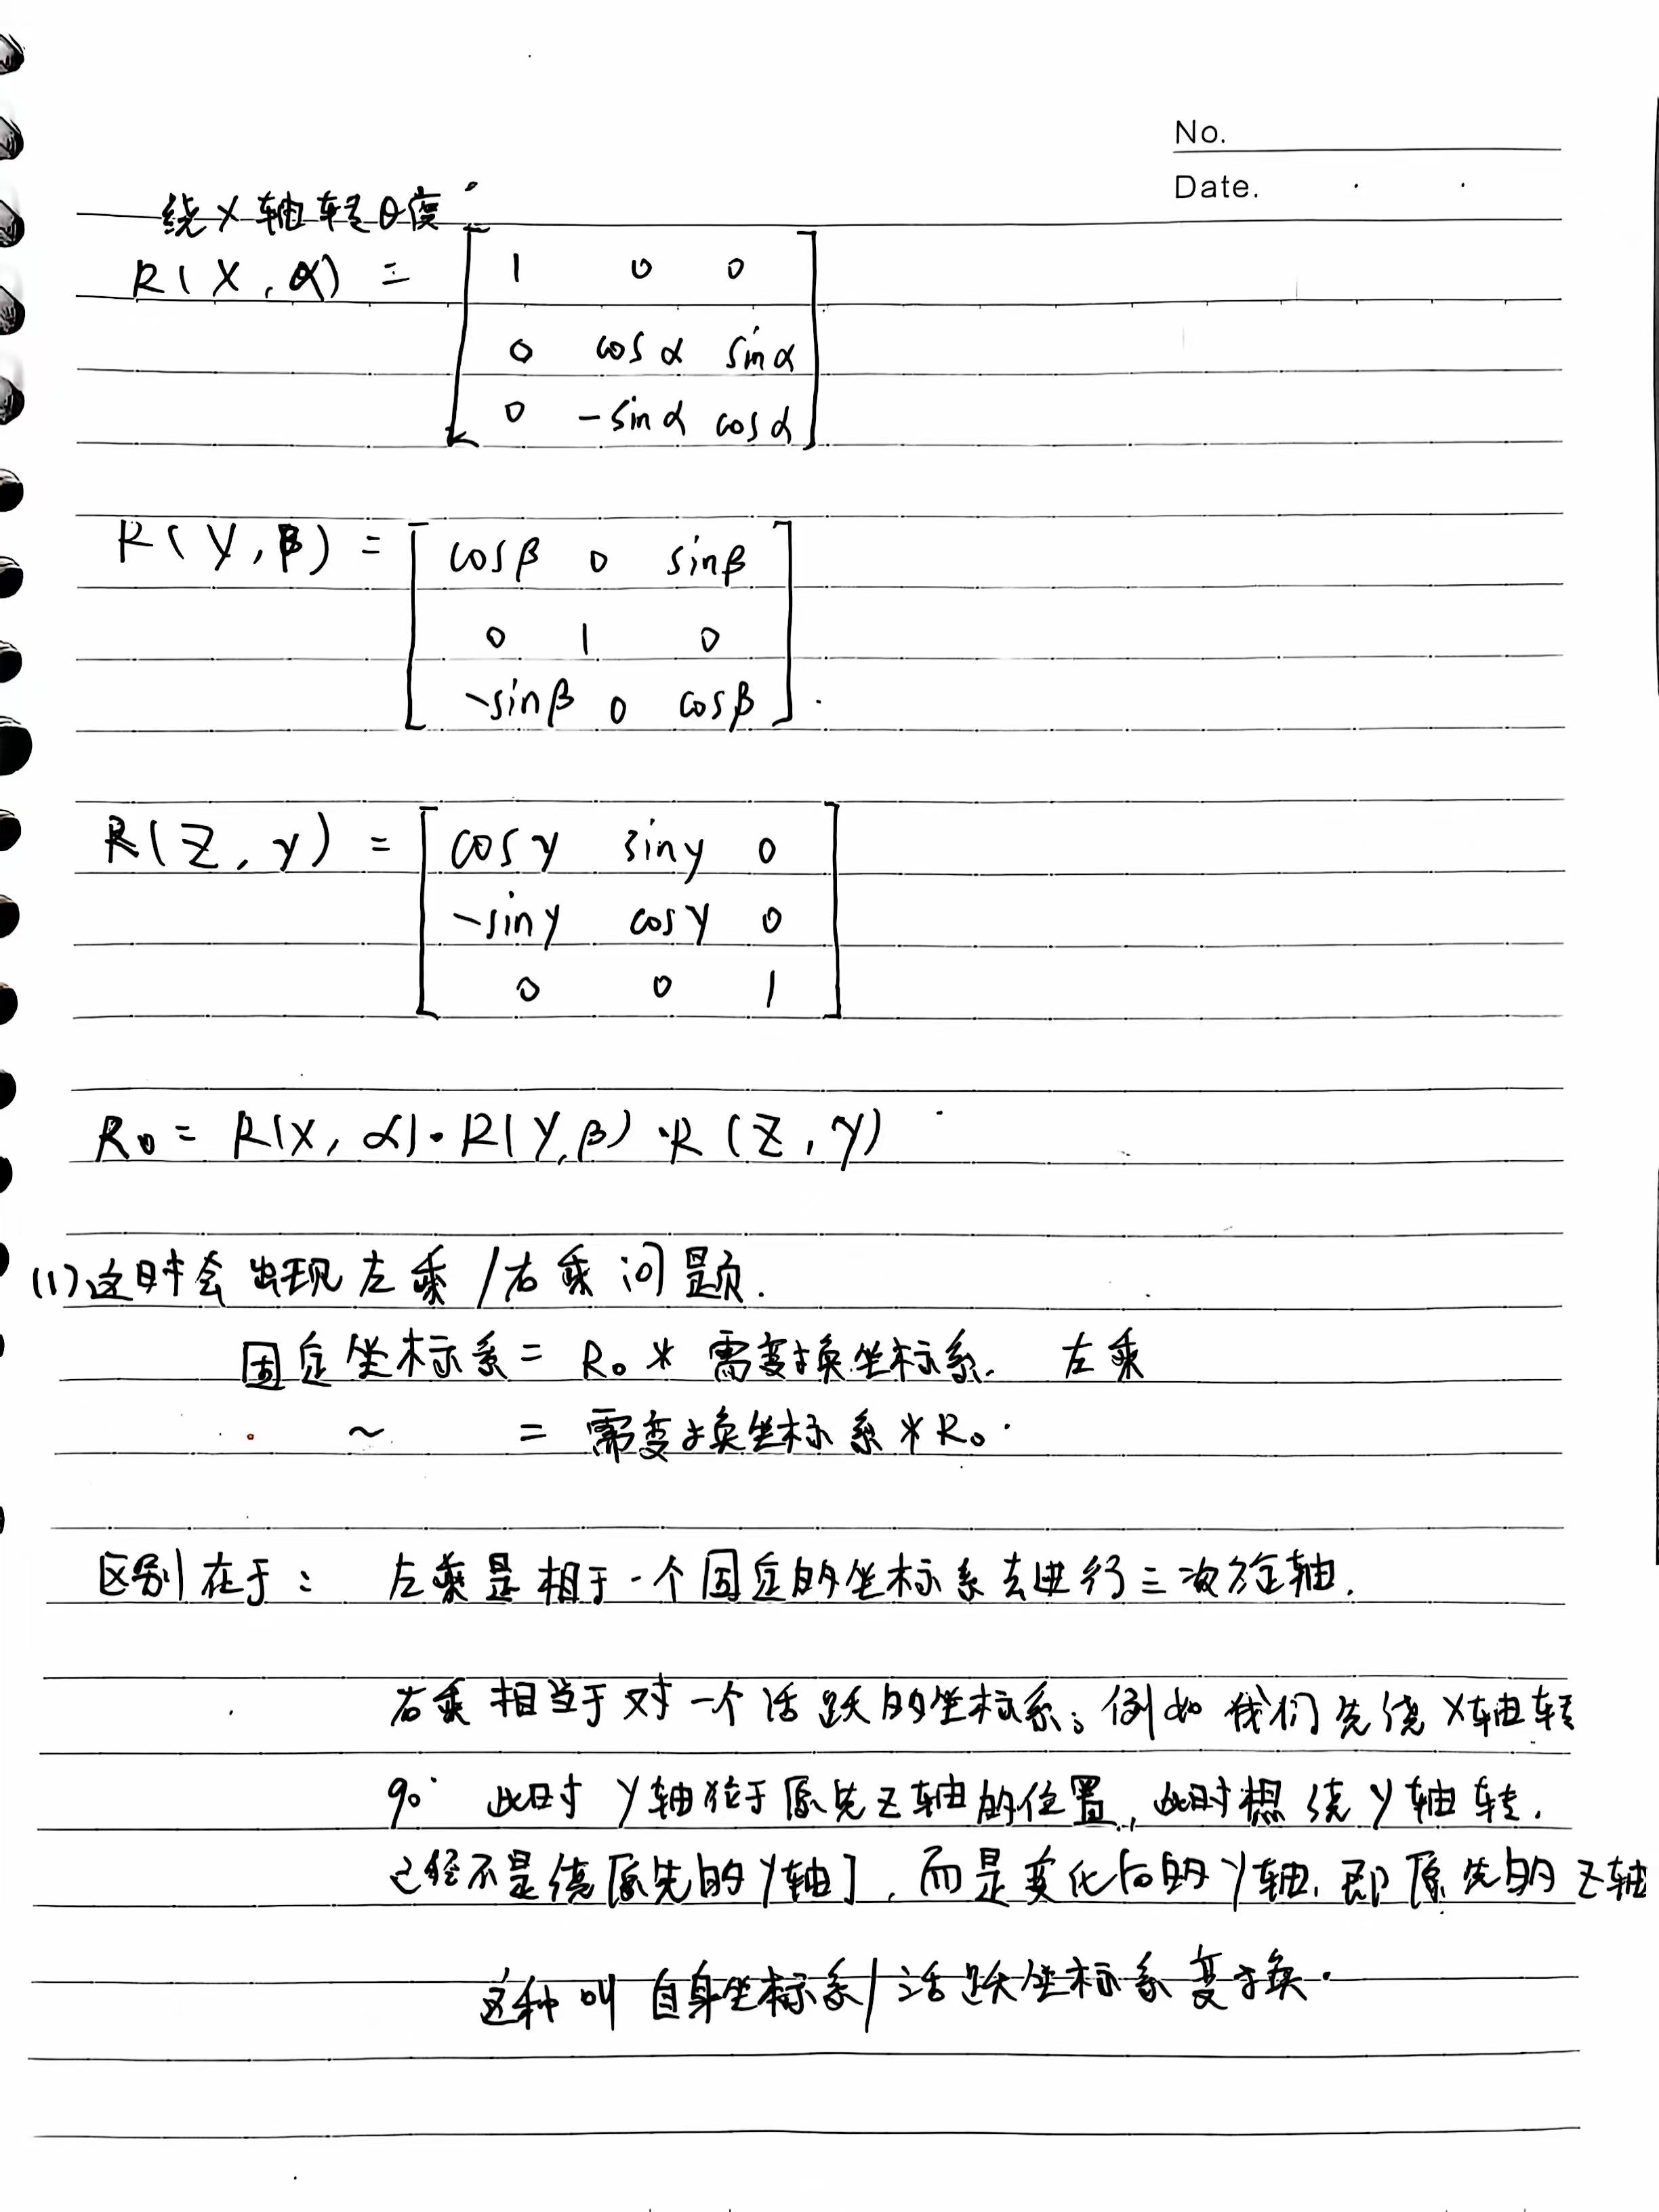 No.
Date.
绕X轴转θ度
R(X,α) = [ 1 0 0
0 cosα sinα
0 -sinα cosα ]
R(Y,β) = [ cosβ 0 sinβ
0 1 0
-sinβ 0 cosβ ].
R(Z,γ) = [ cosγ sinγ 0
-sinγ cosγ 0
0 0 1 ]
R₀ = R(X,α)·R(Y,β)·R(Z,γ)
(1)这时会出现左乘/右乘问题.
固定坐标系 = R₀ * 需变换坐标系. 左乘
~ = 需变换坐标系 * R₀.
区别在于: 左乘是相于一个固定的坐标系去进行三次旋轴.
右乘相当于对一个活跃的坐标系; 例如我们先绕X轴转
90° 此时Y轴位于原先Z轴的位置, 此时想绕Y轴转.
已经不是绕[原先的Y轴], 而是变化后的Y轴, 即原先的Z轴
这种叫自身坐标系/活跃坐标系变换.